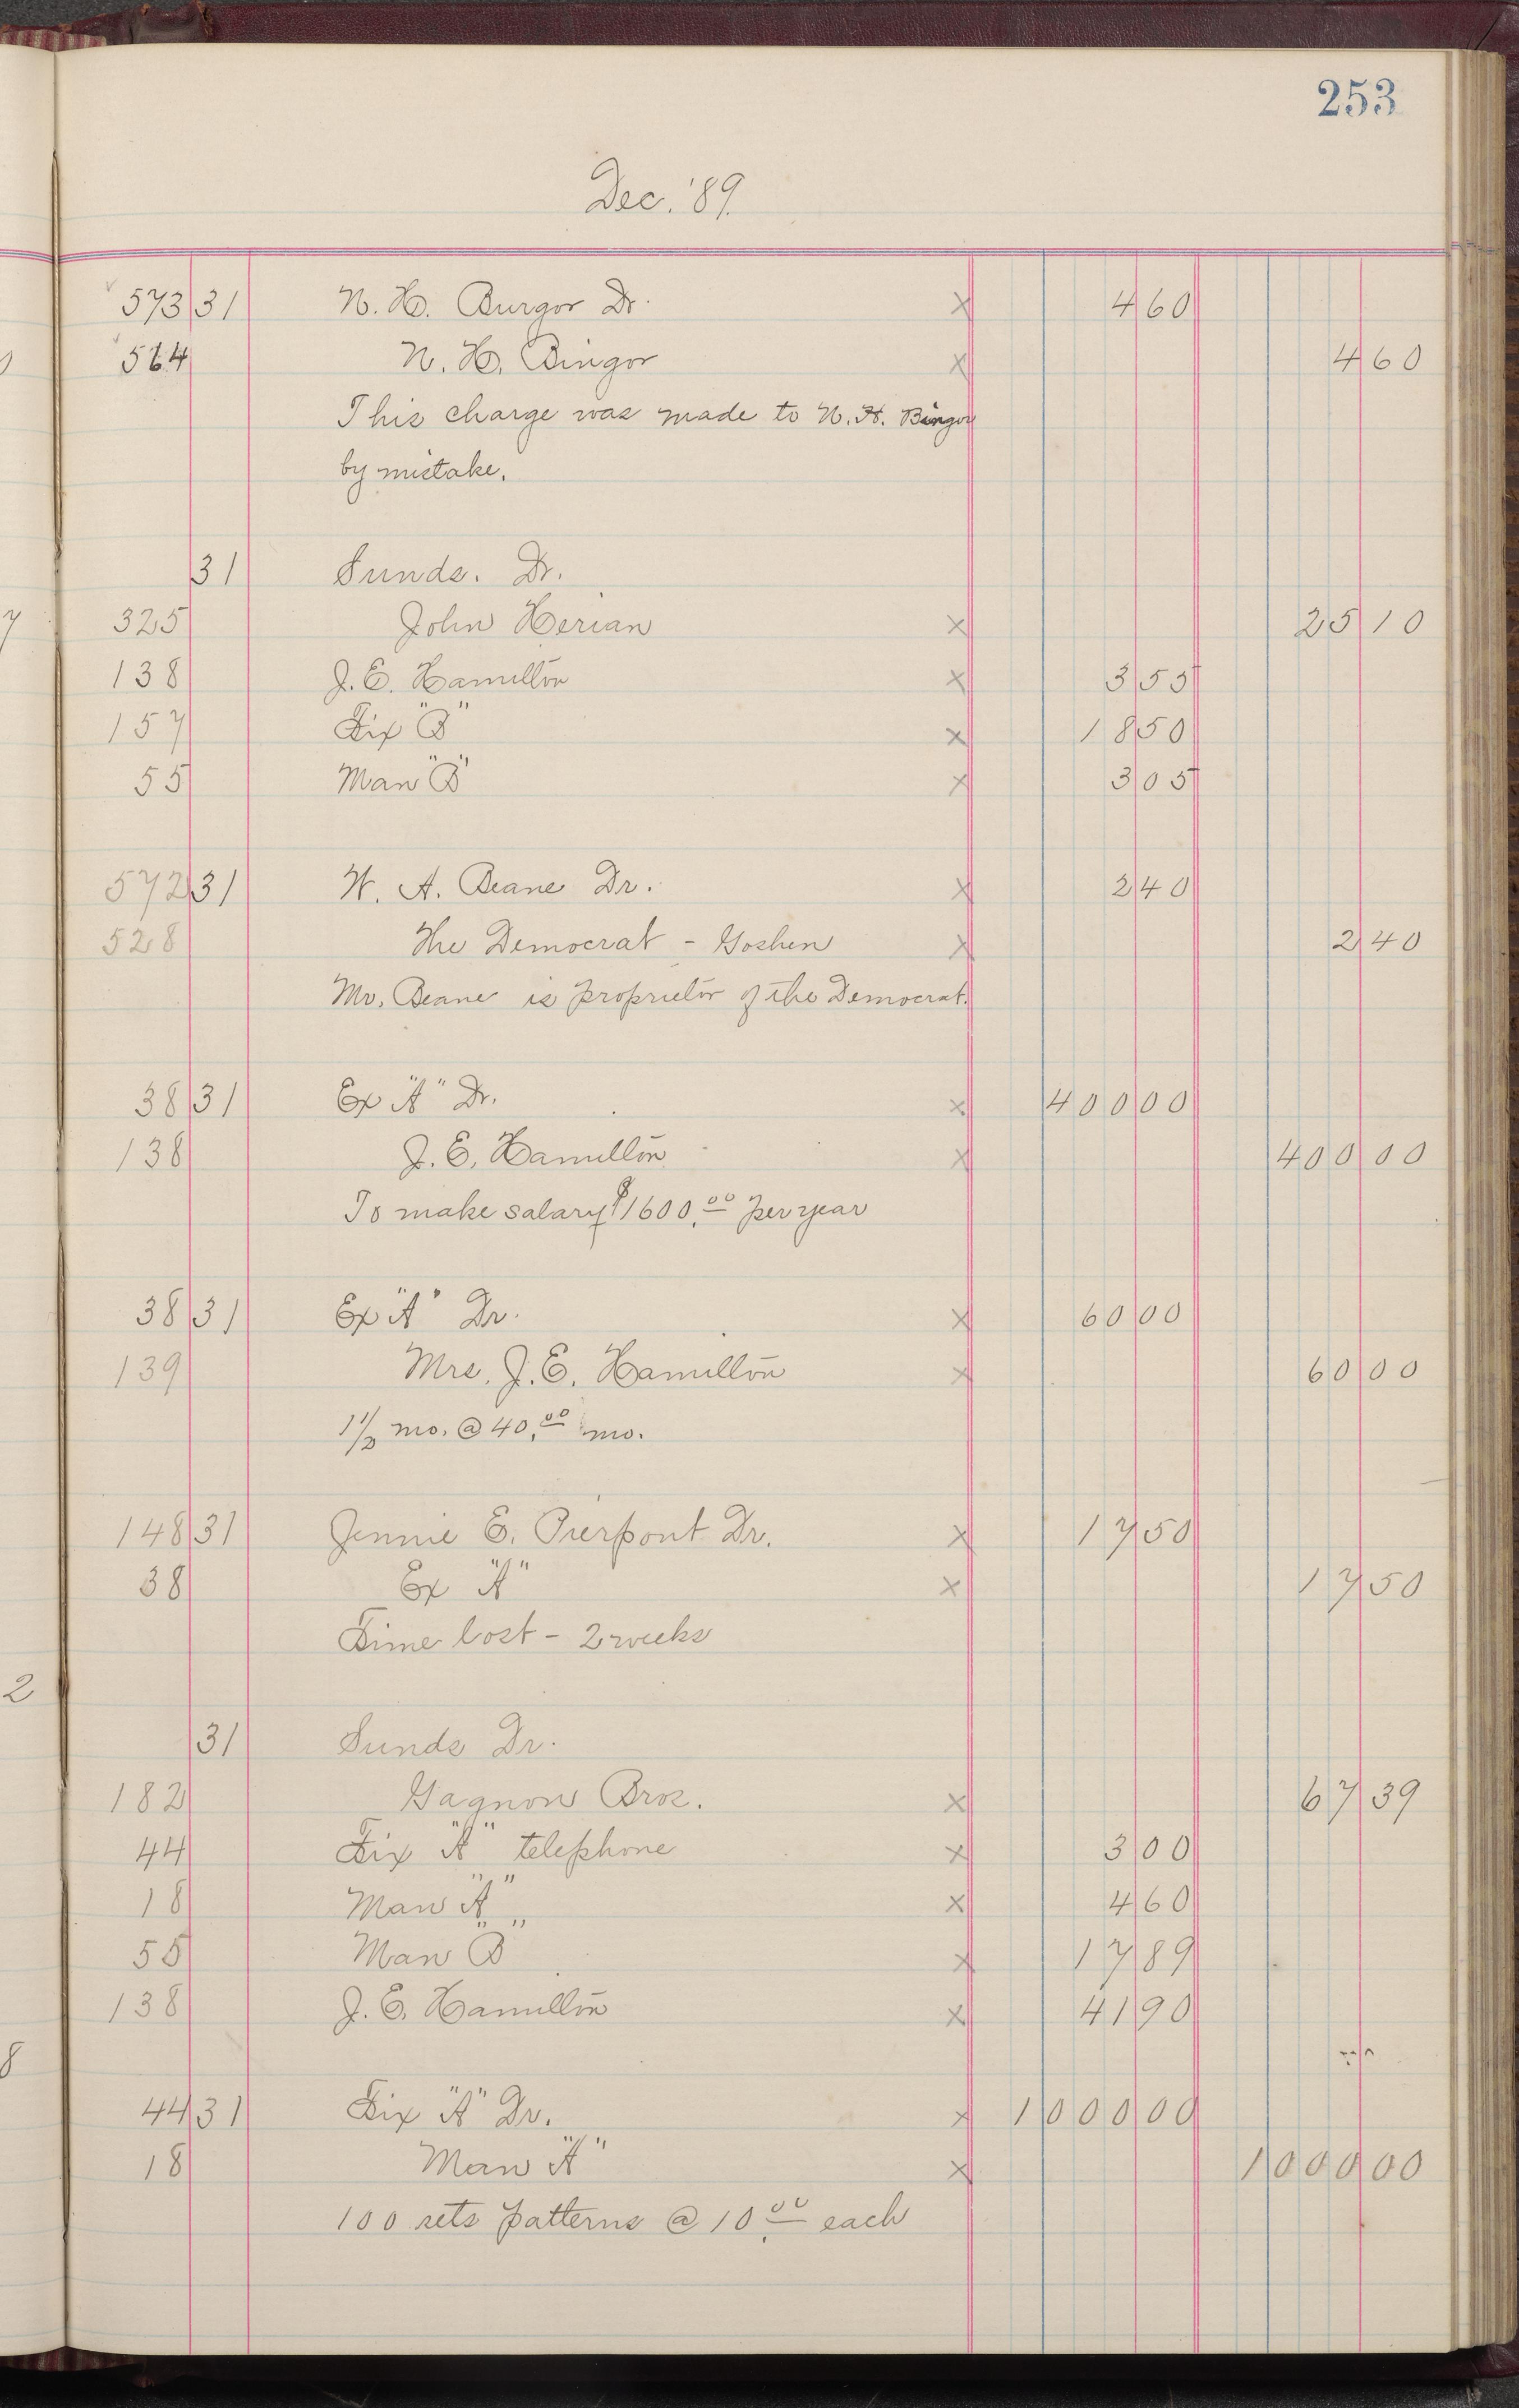 253
Dec. '89.
573 31 N. H. Burgor Dr. x 4 60
564 N. H. Bingor x 4 60
This charge was made to N. H. Bingor
by mistake.
31 Sunds. Dr.
325 John Herian x 25 10
138 J. E. Hamilton x 3 55
157 Fix "B" x 18 50
55 Man "B" x 3 05
572 31 W. A. Beane Dr. x 2 40
528 The Democrat - Goshen x 2 40
Mr. Beane is proprietor of the Democrat.
38 31 Ex "A" Dr. x 400 00
138 J. E. Hamilton x 400 00
To make salary $1600.00 per year
38 31 Ex "A" Dr. x 60 00
139 Mrs. J. E. Hamilton x 60 00
1 1/2 mo. @ 40.00 mo.
148 31 Jennie E. Pierpont Dr. x 17 50
38 Ex "A" x 17 50
Time lost - 2 weeks
31 Sunds Dr.
182 Gagnon Bros. x 67 39
44 Fix "A" telephone x 3 00
18 Man "A" x 4 60
55 Man "B" x 17 89
138 J. E. Hamilton x 41 90
44 31 Fix "A" Dr. x 1000 00
18 Man "A" x 1000 00
100 sets patterns @ 10.00 each